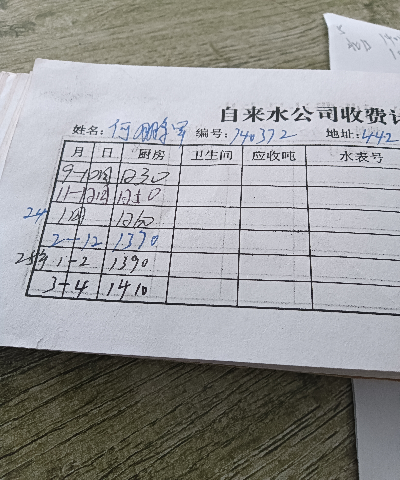 自来水公司收费
姓名: 何 编号: 740372 地址: 442
月 日 厨房 卫生间 应收吨 水表号
9-10 1230
11-12 1250
24 1 12
2-12 1370
25 1-2 1390
3-4 1410